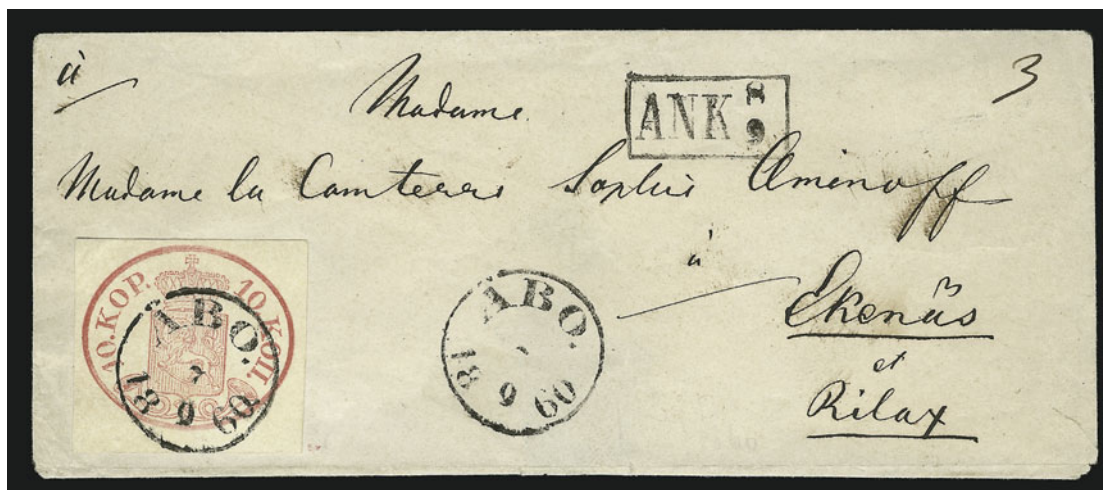 à
Madame
3
ANK 8 9
Madame la Comtesse Sophie Aminoff
à
Ekenäs
et
Rilax
10.KOP. 10 КОП.
ÅBO.
7
18 9 60
ÅBO.
7
18 9 60